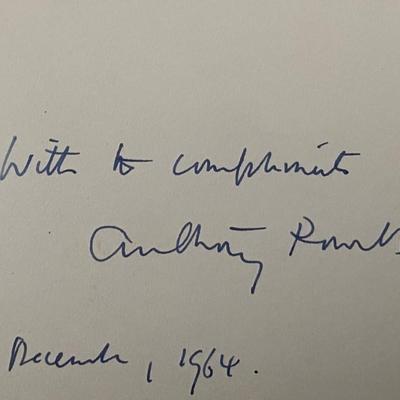 With to compliments
Anthony Powell
December, 1964.